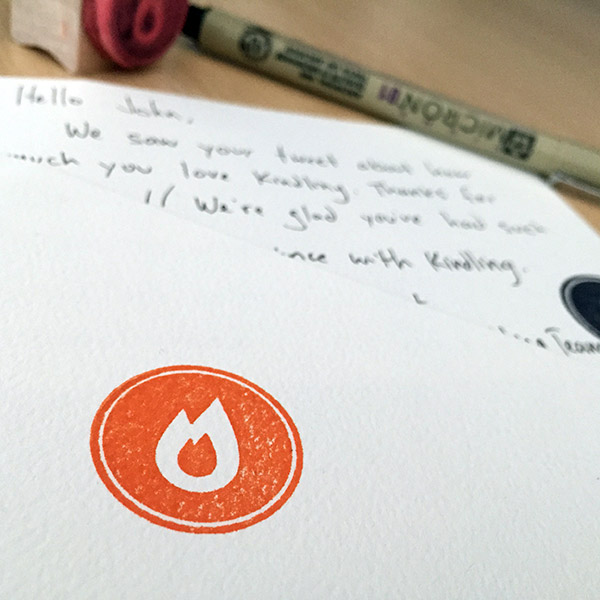 Hello John,
We saw your tweet about how
much you love Kindling. Thanks for
!! We're glad you've had such
ence with Kindling.
Team
MICRON